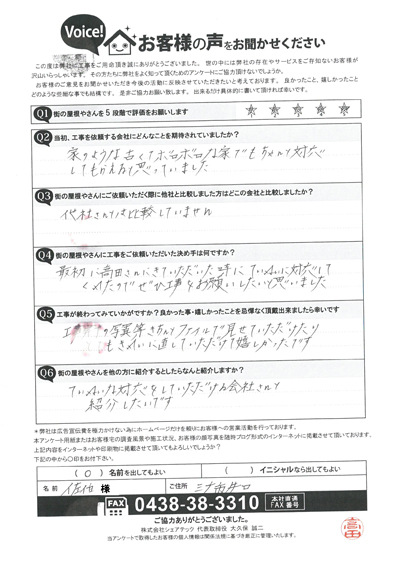 Voice!
お客様の声をお聞かせください
この度は弊社に工事をご用命頂き誠にありがとうございました。世の中には弊社の存在やサービスをご存知ないお客様が
沢山いらっしゃいます。その方たちに弊社をよく知って頂くためのアンケートにご協力頂けないでしょうか。
お客様のご意見をお聞かせいただき今後の活動に反映させていただきたいと考えております。良かったこと、嬉しかったこと
どのような些細な事でも結構です。是非ご協力お願い致します。出来るだけ具体的に書いて頂ければ幸いです。
Q1 街の屋根やさんを5段階で評価をお願いします
Q2 当初、工事を依頼する会社にどんなことを期待されていましたか?
家のような古くてボロボロな家でもちゃんと対応
してもらえると思っていました
Q3 街の屋根やさんにご依頼いただく際に他社と比較しました方はどこの会社と比較しましたか?
他社さんでは比較していません
Q4 街の屋根やさんに工事をご依頼いただいた決め手は何ですか?
最初に高田さんにきていただいた時に ていねいに対応して
くれたのでぜひ工事をお願いしたいと思いました
Q5 工事が終わってみていかがですか?良かった事・嬉しかったことを忌憚なく頂戴出来ましたら幸いです
の写真等きちんとファイルで見せていただけたり
きれいに直していただけて嬉しかったです
Q6 街の屋根やさんを他の方に紹介するとしたらなんと紹介しますか?
ていねいな対応をしていただける会社さんと
紹介したいです
*弊社は広告宣伝費を極力かけない為にホームページだけを頼りにお客様への営業活動を行っております。
本アンケート用紙またはお客様宅の調査風景や施工状況、お客様の顔写真を随時ブログ形式のインターネットに掲載させて頂いております。
上記内容をインターネットや印刷物に掲載させて頂いてもよろしいでしょうか?
下記の中から〇印をお付け下さい。
(〇)名前を出してもよい ( )イニシャルなら出してもよい
名前 佐他 様 ご住所
FAX 0438-38-3310 本社直通 FAX番号
ご協力ありがとうございました。
株式会社シェアテック 代表取締役 大久保 誠二
当アンケートで取得したお客様の個人情報は関係法規に基づき厳正に管理いたします。